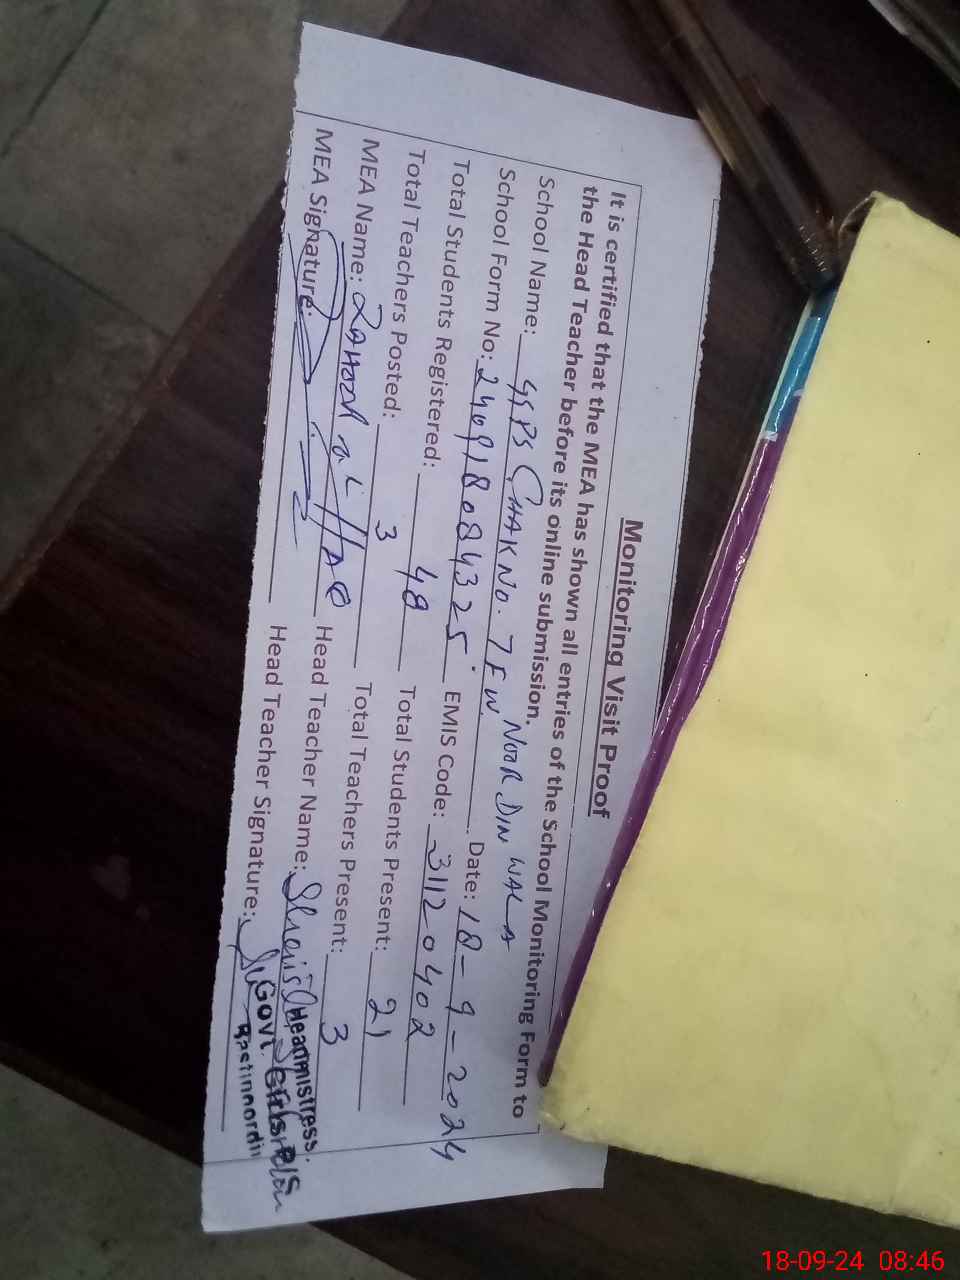 Monitoring Visit Proof
It is certified that the MEA has shown all entries of the School Monitoring Form to
the Head Teacher before its online submission.
School Name: GSPS CHAK NO. 7 FW NOOR DIN WALA
School Form No: 240918084325 Date: 18-9-2024
Total Students Registered: 48 EMIS Code: 31120402
Total Teachers Posted: 3 Total Students Present: 21
MEA Name: HAQ Total Teachers Present: 3
MEA Signature: Head Teacher Name:
Head Teacher Signature:
Headmistress.
Govt. Girls P/S
18-09-24 08:46